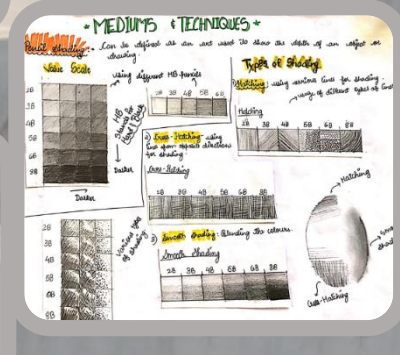 * MEDIUMS & TECHNIQUES *
Pencil shading :- Can be defined as an art used to show the depth of an object or
drawing
Value Scale
using different HB pencils
HB
Stands for
Hard & Black
Darker
Darker
2B
3B
4B
5B
6B
9B
2B 3B 4B 5B 6B
Types of Shading
1) Hatching: using various lines for shading.
using of different types of lines
Hatching
2B 3B 4B 5B 6B 8B
2) Cross-Hatching - using
lines from opposite directions
for shading.
Cross-Hatching
2B 3B 4B 5B 6B 8B
3) Smooth shading: Blending the colours.
Smooth Shading
2B 3B 4B 5B 6B 8B
Various types
of shading
2B
3B
4B
5B
6B
8B
Hatching
Cross-Hatching